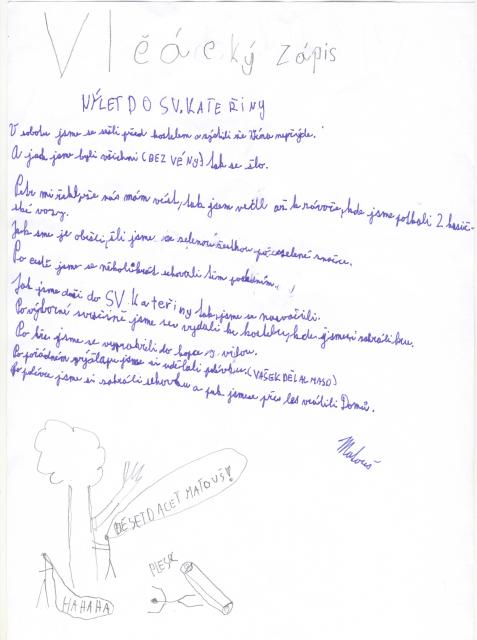 Vlčácký zápis
VÝLET DO SV. KATEŘINY
V sobotu jsme se sešli před kostelem a zjistili že Véna nepřijde.
A jak jsme byli všichni (BEZ VÉNY) tak se šlo.
Petr mi řekl, že nás mám vést, tak jsem vedl až k závoře, kde jsme potkali 2 hasič-
ské vozy.
Jak sme je obešli, šli jsme se zelenou po zelené značce.
Po cestě jsme se několikrát schovali tím
Jak jsme došli do SV. Kateřiny tak jsme se nasvačili.
Po výborné svačině jsme se vydali ke kostelu, kde jsme si zahráli hru.
Po hře jsme se vypravili do kopce s vílou.
Po pořádném výšlapu jsme si udělali polévku. (VAŠEK DĚLAL MASO)
Po polévce jsme si zahráli schovku a pak jsme se přes les vrátili Domů.
Matouš
DESET DACET MATOUŠ!
PLESK
HAHAHA